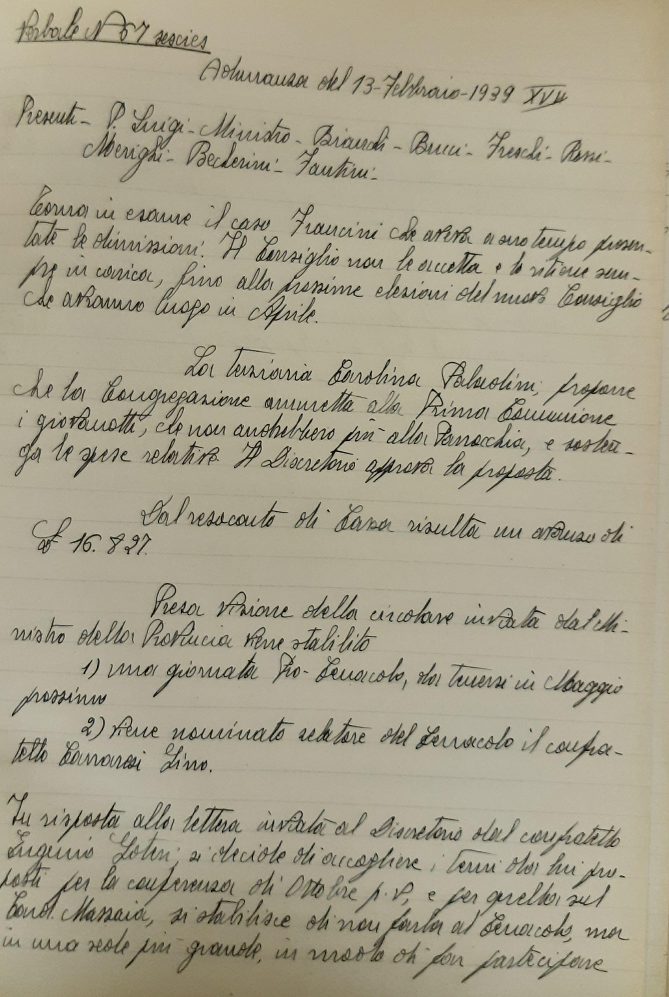 Verbale N° 67 sexcies
Adunanza del 13-Febbraio-1939 XVII
Presenti- P. Luigi- Ministro- Biondi- Bucci- Freschi- Rossi-
Merighi- Becherini- Fantini-
Torna in esame il caso Francini che aveva a suo tempo presen-
tate le dimissioni. Il Consiglio non le accetta e lo ritiene sem-
pre in carica, fino alla prossime elezioni del nuovo Consiglio
che avranno luogo in Aprile.
La terziaria Carolina propone
che la Congregazione ammetta alla Prima Comunione,
i giovanotti, che non andrebbero più alla Parrocchia, e sosten-
ga le spese relative. Il Discretorio approva la proposta.
Dal resoconto di Cassa risulta un avanzo di
£ 16.827.
Presa visione della circolare inviata dal Mi-
nistro della Provincia viene stabilito
1) una giornata Pro-Cenacolo, da tenersi in Maggio
prossimo
2) viene nominato zelatore del Cenacolo il confra-
tello Lino.
In risposta alla lettera inviata al Discretorio dal confratello
Eugenio si decide di accogliere i temi da lui pro-
posti per la conferenza di Ottobre p.v, e per quella sul
Card. Massaia, si stabilisce di non farla al Cenacolo, ma
in una sede più grande, in modo di far partecipare